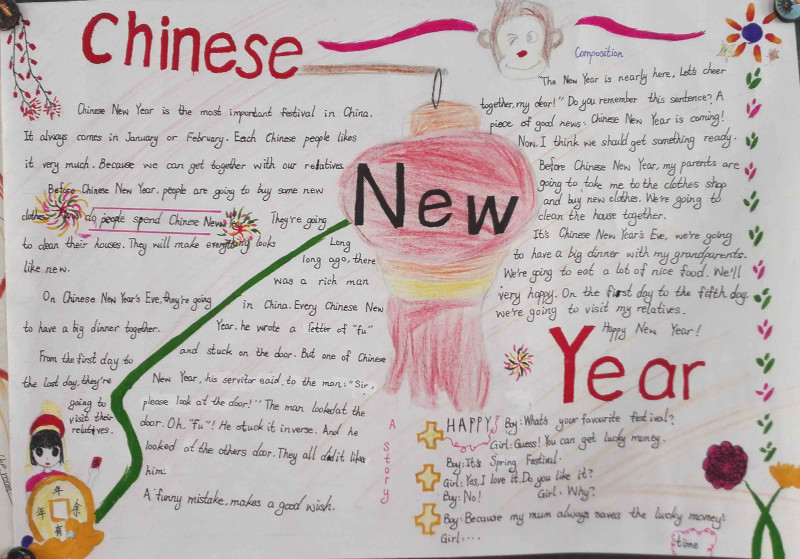 Chinese
New
Year
Chinese New Year is the most important festival in China.
It always comes in January or February. Each Chinese people likes
it very much. Because we can get together with our relatives.
Before Chinese New Year, people are going to buy some new
clothes.
do people spend Chinese New
They're going
to clean their houses. They will make everything looks
like new.
On Chinese New Year's Eve, they're going
to have a big dinner together.
From the first day to
the last day, they're
going to
visit their
relatives.
Long
long ago, there
was a rich man
in China. Every Chinese New
Year, he wrote a letter of "fu"
and stuck on the door. But one of Chinese
New Year, his servitor said to the man: "Sir,
please look at the door!" The man looked at the
door. Oh, "Fu"! He stuck it inverse. And he
looked at the others door. They all did it like
him.
A funny mistake, makes a good wish.
A story
Composition
"The New Year is nearly here, Let's cheer
together, my dear!" Do you remember this sentence? A
piece of good news: Chinese New Year is coming!
Now, I think we should get something ready.
Before Chinese New Year, my parents are
going to take me to the clothes shop
and buy new clothes. We're going to
clean the house together.
It's Chinese New Year's Eve, we're going
to have a big dinner with my grandparents.
We're going to eat a lot of nice food. We'll
very happy. On the first day to the fifth day,
we're going to visit my relatives.
Happy New Year!
HAPPY
Boy: What's your favourite festival?
Girl: Guess! You can get lucky money.
Boy: It's Spring Festival.
Girl: Yes, I love it. Do you like it?
Boy: No!
Girl: Why?
Boy: Because my mum always saves the lucky money!
Girl: ...
time
年
年 余
有